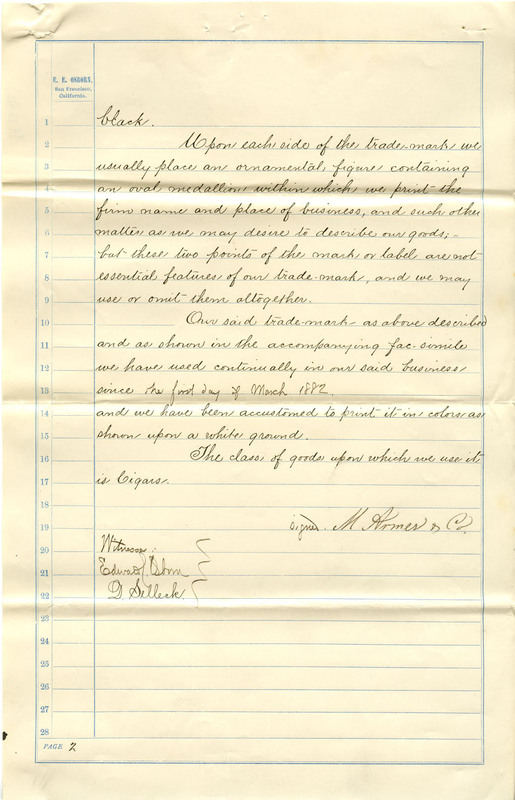 E. E. OSBORN,
San Francisco,
California.
1 black.
2 Upon each side of the trade-mark we
3 usually place an ornamental figure containing
4 an oval medallion within which we print the
5 firm name and place of business, and such other
6 matter as we may desire to describe our goods;-
7 but these two points of the mark or label are not
8 essential features of our trade-mark, and we may
9 use or omit them altogether.
10 Our said trade-mark as above described
11 and as shown in the accompanying fac-simile
12 we have used continually in our said business
13 since the first day of March 1882
14 and we have been accustomed to print it in colors as
15 shown upon a white ground.
16 The class of goods upon which we use it
17 is Cigars.
18
19 signed. M. Armer & Co.
20 Witnesses:
21 Osborn
22 D. Selleck.
23
24
25
26
27
28
PAGE 2